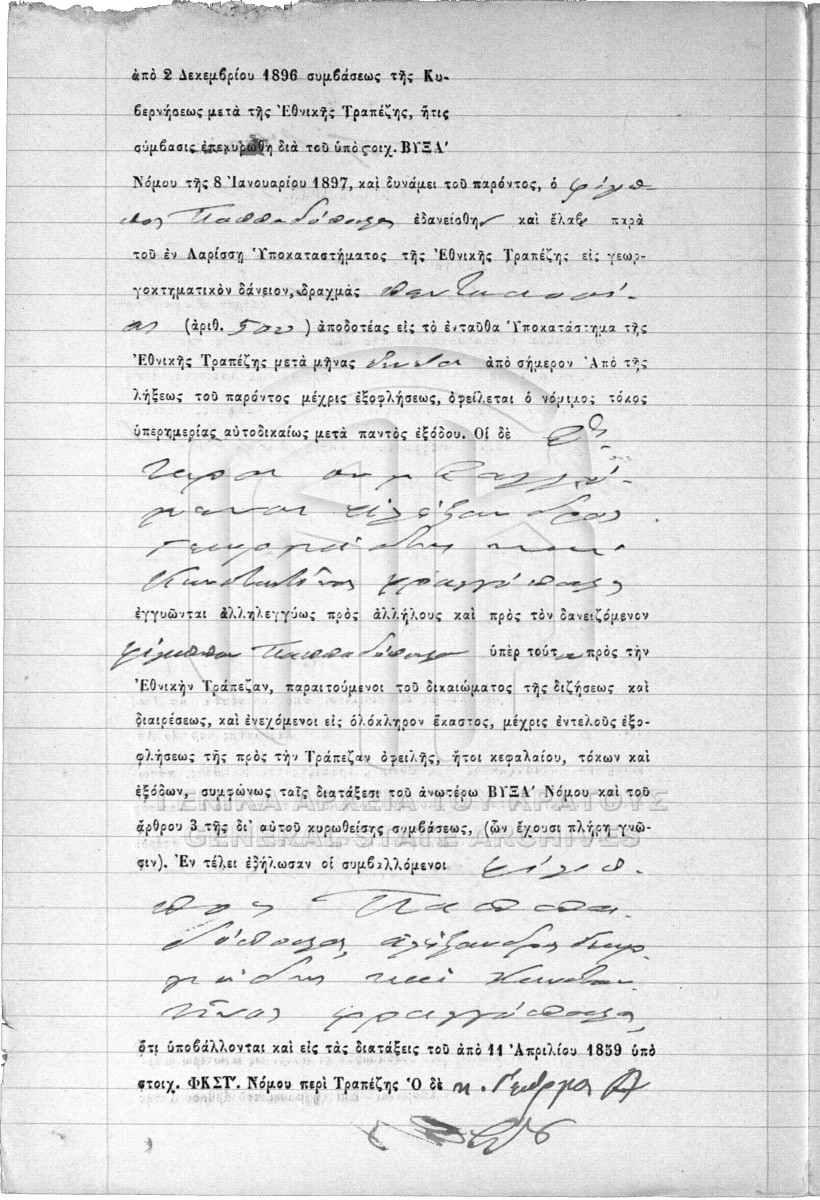 ἀπὸ 2 Δεκεμβρίου 1896 συμβάσεως τῆς Κυ-
βερνήσεως μετὰ τῆς Ἐθνικῆς Τραπέζης, ἥτις
σύμβασις ἐπεκυρώθη διὰ τοῦ ὑπὸ ϛοιχ. ΒΥΞΑ'
Νόμου τῆς 8 Ἰανουαρίου 1897, καὶ δυνάμει τοῦ παρόντος, ὁ Φίλιπ-
πος Παππαδόπουλος ἐδανείσθη καὶ ἔλαβε παρὰ
τοῦ ἐν Λαρίσσῃ Ὑποκαταστήματος τῆς Ἐθνικῆς Τραπέζης εἰς γεωρ-
γοκτηματικὸν δάνειον, δραχμὰς πεντακοσί-
ας (ἀριθ. 500) ἀποδοτέας εἰς τὸ ἐνταῦθα Ὑποκατάστημα τῆς
Ἐθνικῆς Τραπέζης μετὰ μῆνας ἀπὸ σήμερον Ἀπὸ τῆς
λήξεως τοῦ παρόντος μέχρις ἐξοφλήσεως, ὀφείλεται ὁ νόμιμος τόκος
ὑπερημερίας αὐτοδικαίως μετὰ παντὸς ἐξόδου. Οἱ δὲ δεύ-
τεροι συμβαλλό-
μενοι Ἀλέξανδρος
Γεωργιάδης και
Κωνσταντῖνος Φραγγόπουλος
ἐγγυῶνται ἀλληλεγγύως πρὸς ἀλλήλους καὶ πρὸς τὸν δανειζόμενον
Φίλιππον Παππαδόπουλον ὑπὲρ τούτου πρὸς τὴν
Ἐθνικὴν Τράπεζαν, παραιτούμενοι τοῦ δικαιώματος τῆς διζήσεως καὶ
διαιρέσεως, καὶ ἐνεχόμενοι εἰς ὁλόκληρον ἕκαστος, μέχρις ἐντελοῦς ἐξο-
φλήσεως τῆς πρὸς τὴν Τράπεζαν ὀφειλῆς, ἤτοι κεφαλαίου, τόκων καὶ
ἐξόδων, συμφώνως ταῖς διατάξεσι τοῦ ἀνωτέρω ΒΥΞΑ' Νόμου καὶ τοῦ
ΓΕΝΙΚΑ ΑΡΧΕΙΑ ΤΟΥ ΚΡΑΤΟΥΣ
ἄρθρου 3 τῆς δι' αὐτοῦ κυρωθείσης συμβάσεως, (ὧν ἔχουσι πλήρη γνῶ-
GENERAL STATE ARCHIVES
σιν). Ἐν τέλει ἐδήλωσαν οἱ συμβαλλόμενοι Φίλιπ-
πος Παππα-
δόπουλος, Ἀλέξανδρος Γεωρ-
γιάδης καὶ Κωνσταν-
τῖνος Φραγγόπουλος,
ὅτι ὑποβάλλονται καὶ εἰς τὰς διατάξεις τοῦ ἀπὸ 11 Ἀπριλίου 1859 ὑπὸ
στοιχ. ΦΚΣΤ'. Νόμου περὶ Τραπέζης Ὁ δὲ κ. Γεώργιος Α